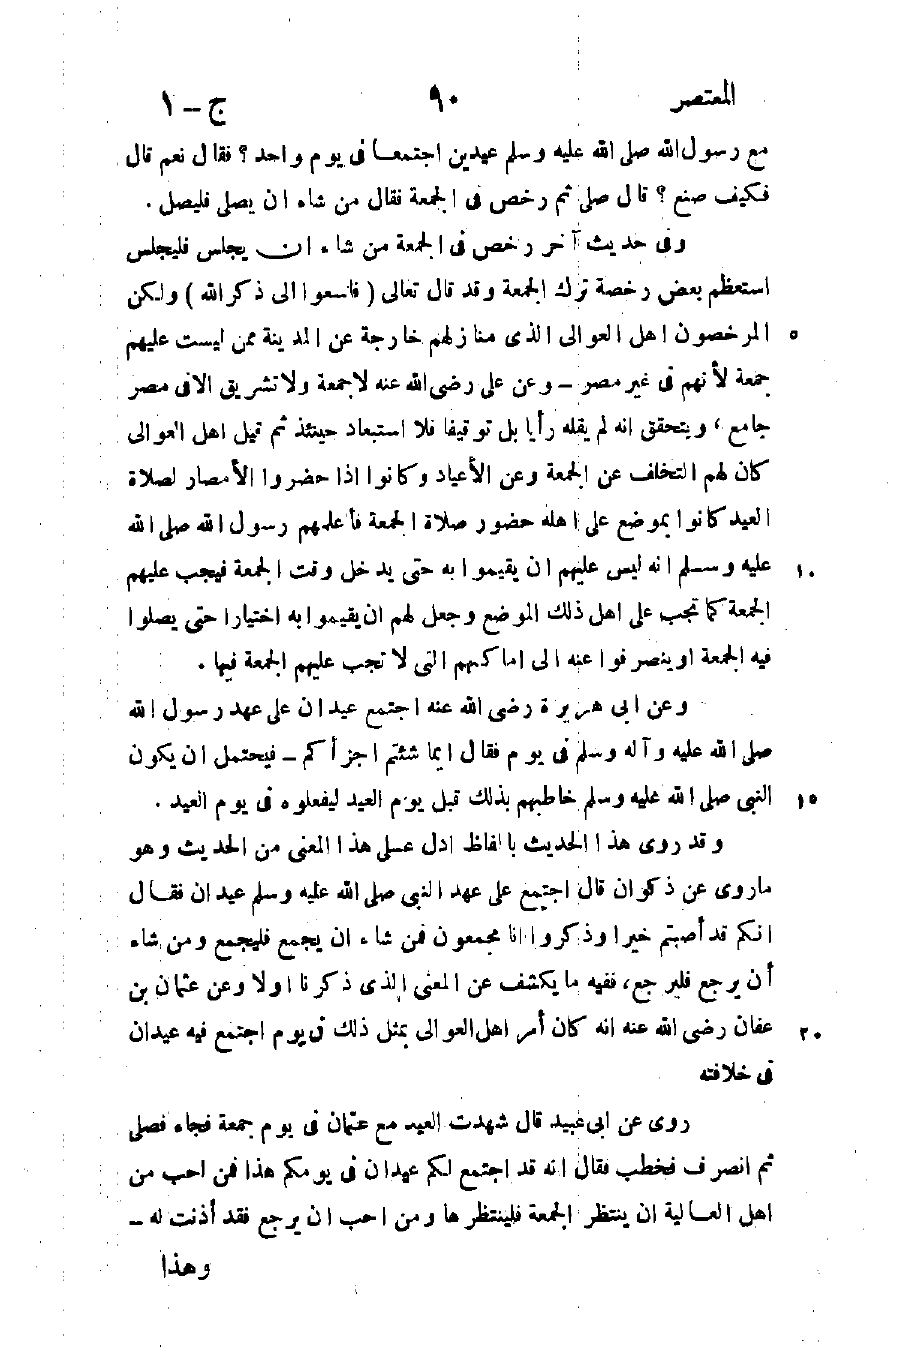 المعتصر ٩٠ ج - ١
مع رسول الله صلى الله عليه وسلم عيدين اجتمعا فى يوم واحد ؟ فقال نعم قال
فكيف صنع ؟ قال صلى ثم رخص فى الجمعة فقال من شاء ان يصلى فليصل .
وفى حديث آخر رخص فى الجمعة من شاء ان يجلس فليجلس
استعظم بعض رخصة ترك الجمعة وقد قال تعالى ( فاسعوا الى ذكر الله ) ولكن
المرخصون اهل العوالى الذى منازلهم خارجة عن المدينة ممن ليست عليهم ٥
جمعة لأنهم فى غير مصر - وعن على رضى الله عنه لا جمعة ولا تشريق الا فى مصر
جامع ، ويتحقق انه لم يقله رأيا بل توقيفا فلا استبعاد حينئذ ثم قيل اهل العوالى
كان لهم التخلف عن الجمعة وعن الأعياد وكانوا اذا حضروا الأمصار لصلاة
العيد كانوا بموضع على اهله حضور صلاة الجمعة فأعلمهم رسول الله صلى الله
عليه وسلم انه ليس عليهم ان يقيموا به حتى يدخل وقت الجمعة فيجب عليهم ١٠
الجمعة كما تجب على اهل ذلك الموضع وجعل لهم ان يقيموا به اختيارا حتى يصلوا
فيه الجمعة او ينصرفوا عنه الى اماكنهم التى لا تجب عليهم الجمعة فيها .
وعن ابى هريرة رضى الله عنه اجتمع عيدان على عهد رسول الله
صلى الله عليه وآله وسلم فى يوم فقال ايما شئتم اجزأكم - فيحتمل ان يكون
النبى صلى الله عليه وسلم خاطبهم بذلك قبل يوم العيد ليفعلوه فى يوم العيد . ١٥
وقد روى هذا الحديث بالفاظ ادل على هذا المعنى من الحديث وهو
ماروى عن ذكوان قال اجتمع على عهد النبى صلى الله عليه وسلم عيدان فقال
انكم قد أصبتم خيرا وذكروا انا مجمعون فمن شاء ان يجمع فليجمع ومن شاء
أن يرجع فليرجع ، ففيه ما يكشف عن المعنى الذى ذكرنا اولا وعن عثمان بن
عفان رضى الله عنه انه كان أمر اهل العوالى بمثل ذلك فى يوم اجتمع فيه عيدان ٢٠
فى خلافته
روى عن ابى عبيد قال شهدت العيد مع عثمان فى يوم جمعة فجاء فصلى
ثم انصرف فخطب فقال انه قد اجتمع لكم عيدان فى يومكم هذا فمن احب من
اهل العالية ان ينتظر الجمعة فلينتظرها ومن احب ان يرجع فقد أذنت له -
وهذا